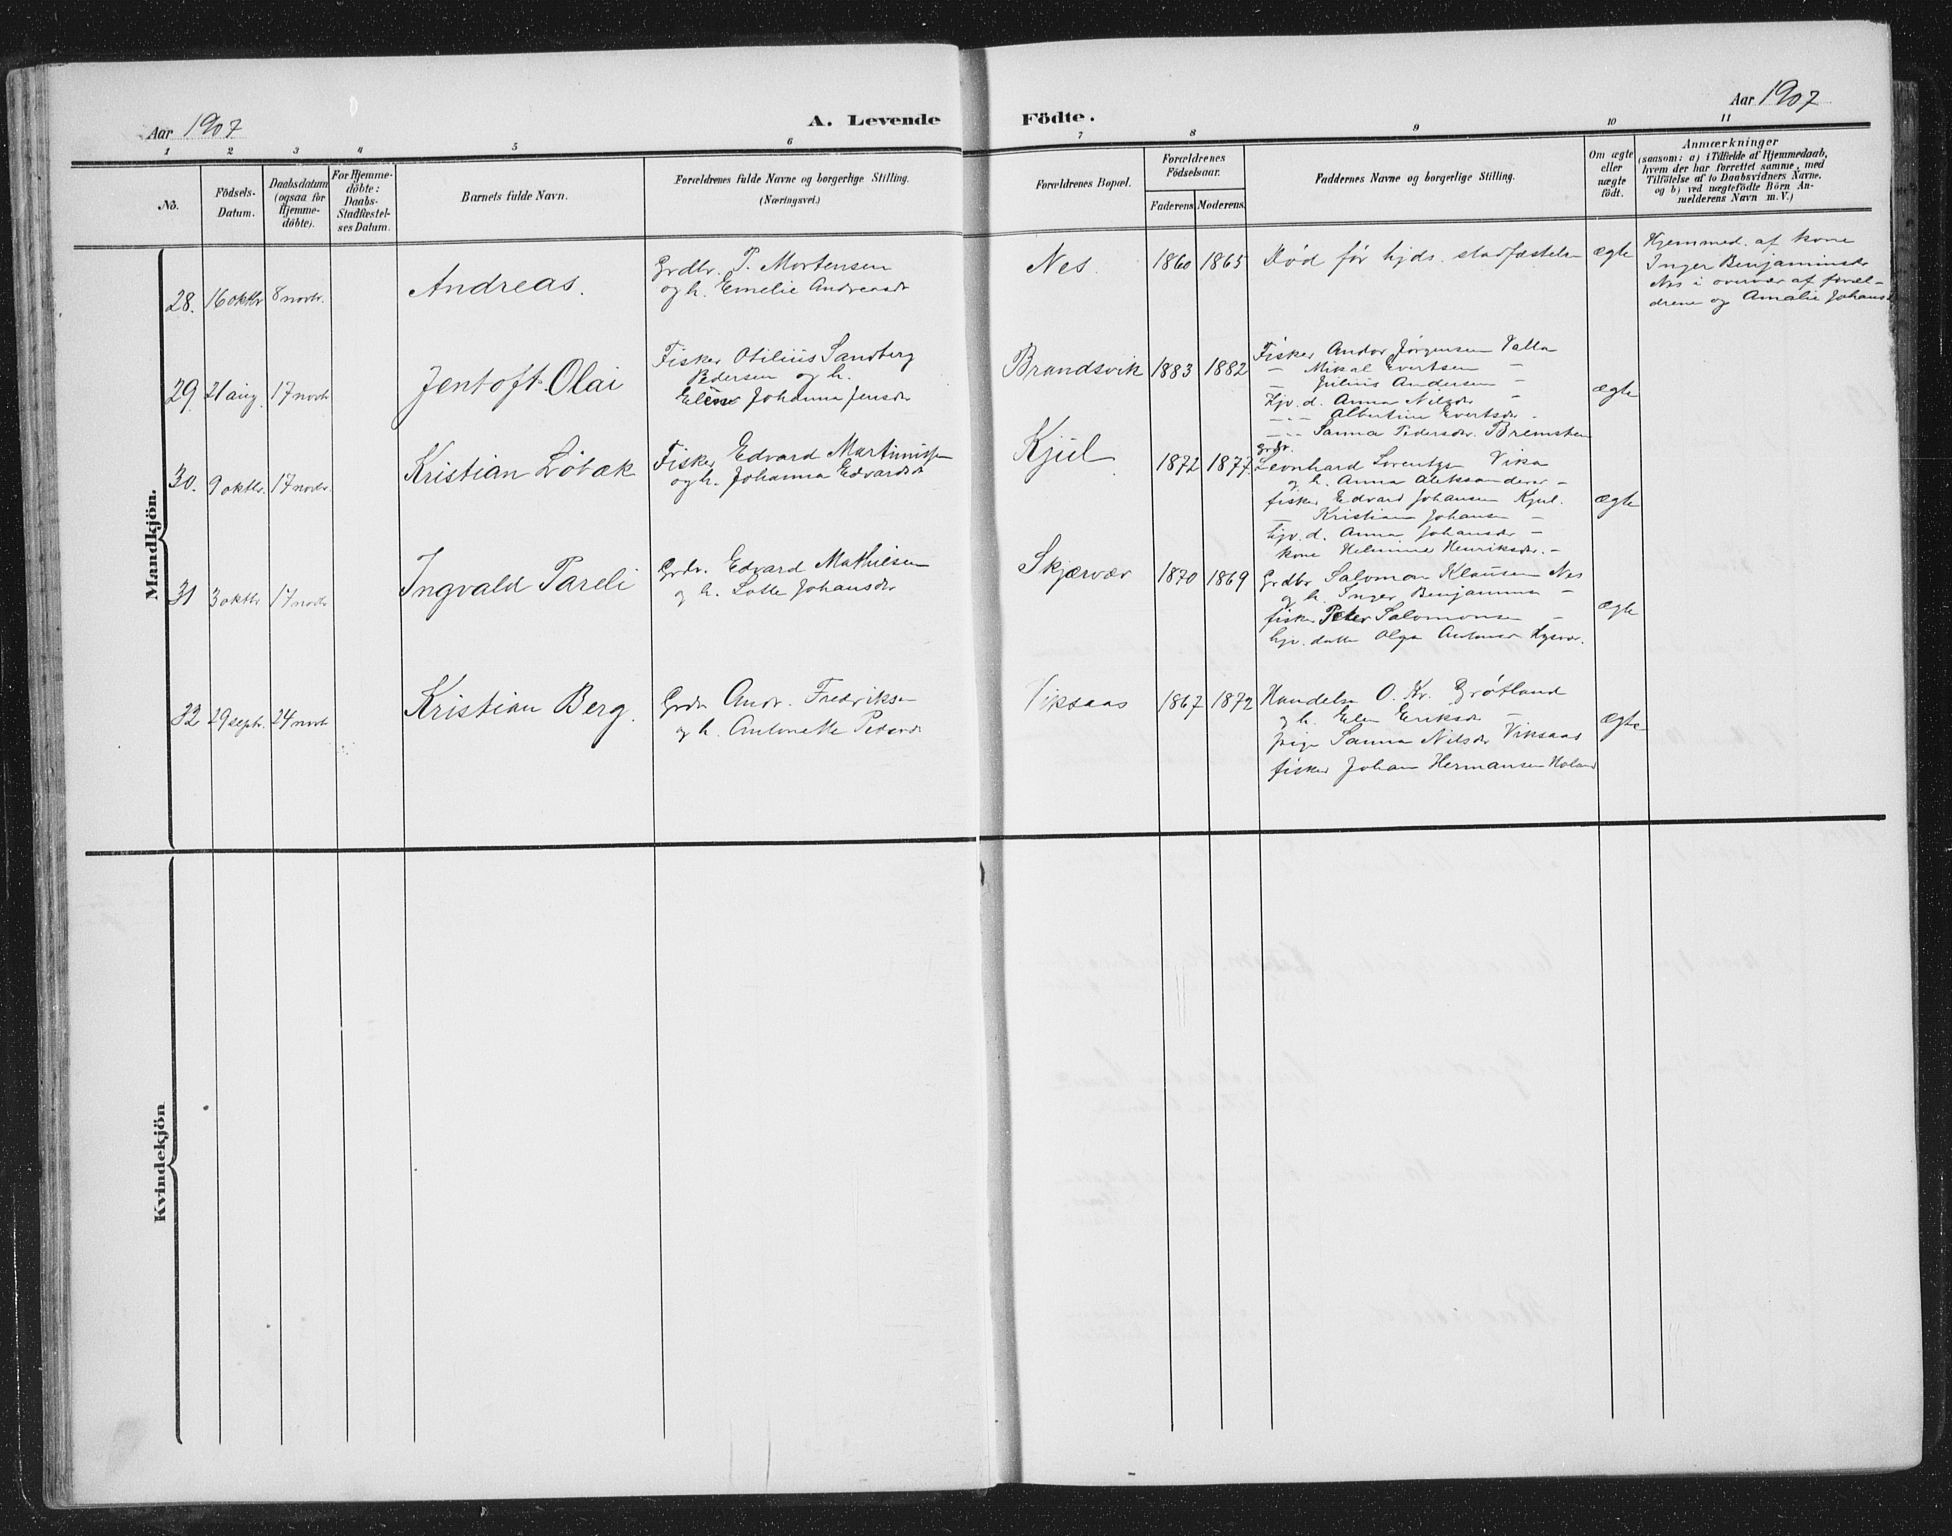 Aar 1907
A. Levende
Födte.
Aar 1907
1 2 3 4 5 6 7 8 9 10 11
No.
Födsels-
Datum.
Daabsdatum
(ogsaa for
Hjemme-
döbte).
For Hjemme-
döbte:
Daabs-
Stadfæstel-
ses Datum.
Barnets fulde Navn.
Forældrenes fulde Navne og borgerlige Stilling.
(Næringsvei.)
Forældrenes Bopæl.
Forældrenes
Födselsaar.
Faderens Moderens
Faddernes Navne og borgerlige Stilling.
Om ægte
eller
uægte
födt.
Anmærkninger
(saasom: a) i Tilfælde af Hjemmedaab,
hvem der har forrettet samme, med
Tilföielse af to Daabsvidners Navne,
og b) ved uægtefödte Börn An-
melderens Navn m. V.)
Mandkjön.
28. 16 oktbr 8 novbr. Andreas.
Grdbr. P. Mortensen
og h. Emelie Andreasdr
Nes. 1860 1865
Død før hjds. stadfæstelse
ægte
Hjemmed. af kone
Inger Benjaminsdr
Nes i overvær af foræl-
drene og Amalie Johansd
29. 21 aug. 17 novbr Jentoft Olai
Fisker Otilius Sandberg
Pedersen og h.
Eline Johanna Jensdr
Brandsvik 1883 1882
Fisker Andor Jørgensen Valla
— Mikal Evertsen —
— Julius Andersen —
Hjv. d. Anna Nilsdr —
— Albertine Evertsdr —
— Sanna Pedersdr. Bremsten
ægte
30. 9 oktbr. 17 novbr. Kristian Löbæk
Fisker Edvard Martinussen
og h. Johanna Edvardsdr
Kjul 1872 1877.
Grdbr.
Leonhard Lorentzs Vika
og h. Anna Aleksanders —
fisker Edvard Johansen Kjul.
— Kristian Johansen —
hjv. d. Anna Johansdr —
kone Helmine Henriksdr. —
ægte
31 3 oktbr 17 novbr Ingvald Pareli
Grdr. Edvard Mathiesen
og h. Lotte Johansdr
Skjærvær 1870 1869
Grdbr Salomon Klausen Nes
og h. Inger Benjamins —
fisker Peter Salomonsen —
hjv. datter Olga Antons
ægte
32 29 septr. 24 novb Kristian Berg.
Grdr Andr. Fredriksen
og h. Antonette Pedersdr
Viksaas 1867 1872
Handelsm O. Kr. Grøtland
og h. Elen Eriksdr —
pige Sanna Nilsdr Viksaas
fisker Johan Hermansen Holand
ægte
Kvindekjön